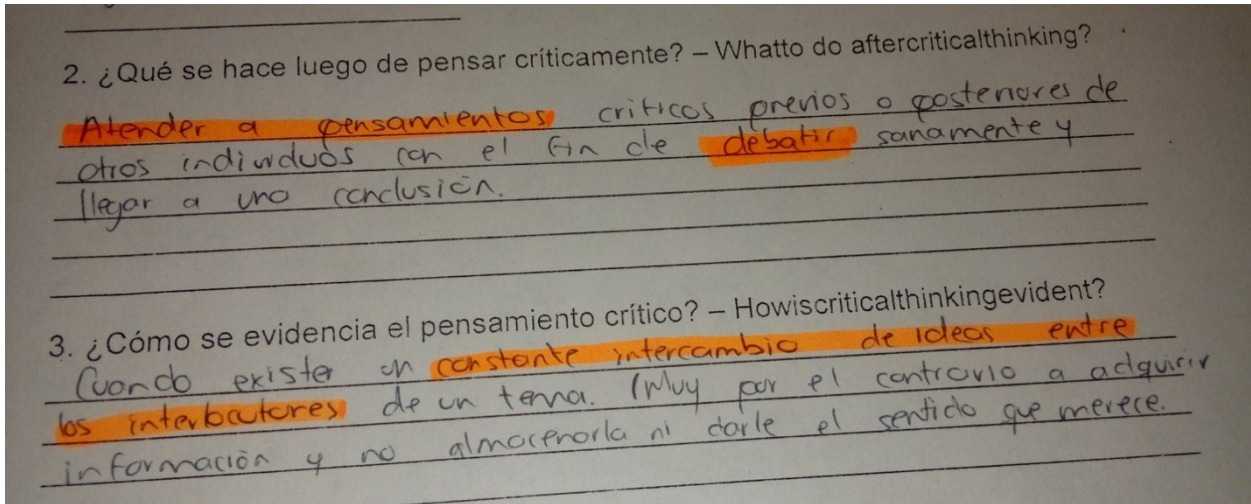 2. ¿Qué se hace luego de pensar críticamente? – Whatto do aftercriticalthinking?
Atender a pensamientos criticos previos o posteriores de
otros individuos con el fin de debatir sanamente y
llegar a una conclusión.
3. ¿Cómo se evidencia el pensamiento crítico? – Howiscriticalthinkingevident?
Cuando existe un constante intercambio de ideas entre
los interlocutores de un tema. (Muy por el contrario a adquirir
información y no almacenarla ni darle el sentido que merece.